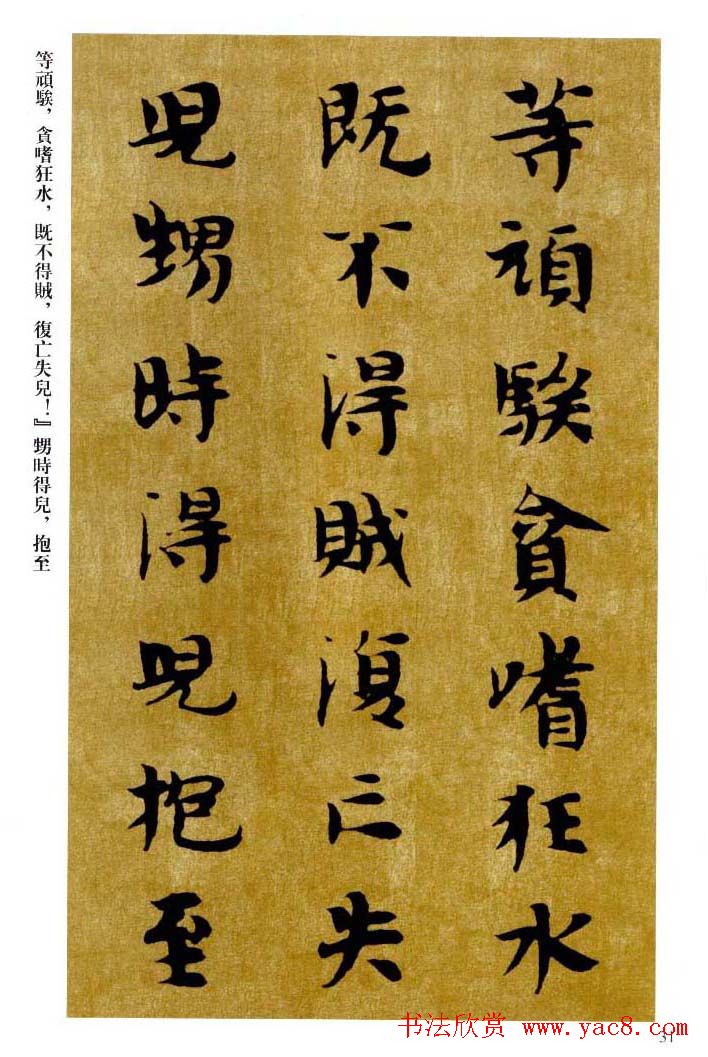 等頑騃貪嗜狂水
既不得賊復亡失
兒甥時得兒抱至
等頑騃，貪嗜狂水，既不得賊，復亡失兒！』甥時得兒，抱至
书法欣赏 www.yac8.com
31